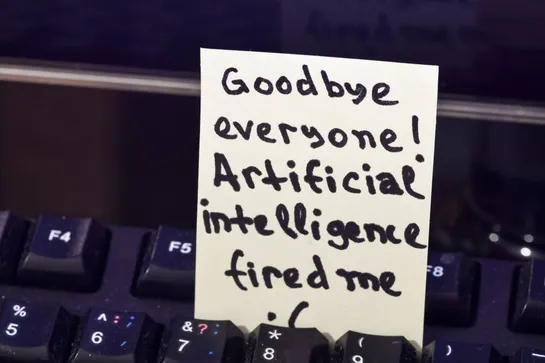 Goodbye
everyone!
Artificial
intelligence
fired me
:(
F4
F5
F8
%
5
^
6
&
?
7
*
8
(
9
)